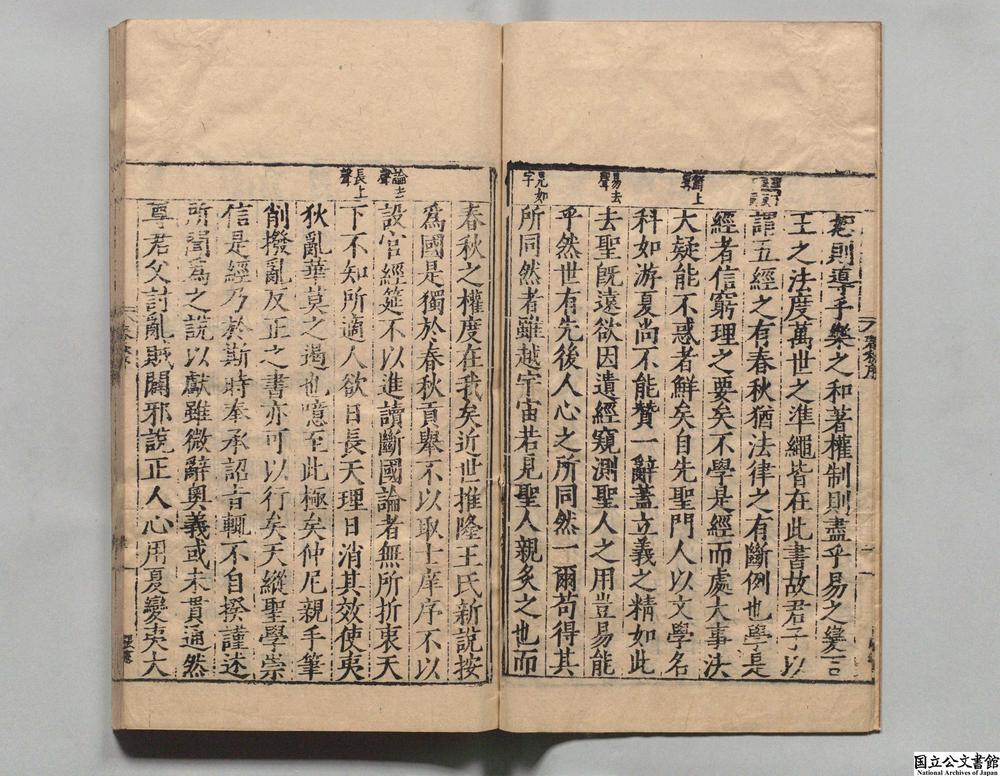 恕則導乎樂之和著權制則盡乎易之變百
王之法度萬世之準繩皆在此書故君子以
謂五經之有春秋猶法律之有斷例也學是
經者信窮理之要矣不學是經而處大事決
大疑能不惑者鮮矣自先聖門人以文學名
科如游夏尚不能贊一辭蓋立義之精如此
去聖既遠欲因遺經窺測聖人之用豈易能
乎然世有先後人心之所同然一爾苟得其
所同然者雖越宇宙若見聖人親炙之也而
鮮上聲
易去聲
見如字
春秋之權度在我矣近世推隆王氏新說按
爲國是獨於春秋貢舉不以取士庠序不以
設官經筵不以進讀斷國論者無所折衷天
下不知所適人欲日長天理日消其效使夷
狄亂華莫之遏也噫至此極矣仲尼親手筆
削撥亂反正之書亦可以行矣天縱聖學崇
信是經乃於斯時奉承詔旨輒不自揆謹述
所聞爲之說以獻雖微辭奧義或未貫通然
尊君父討亂賊闢邪說正人心用夏變夷大
論去聲
長上聲
国立公文書館
National Archives of Japan